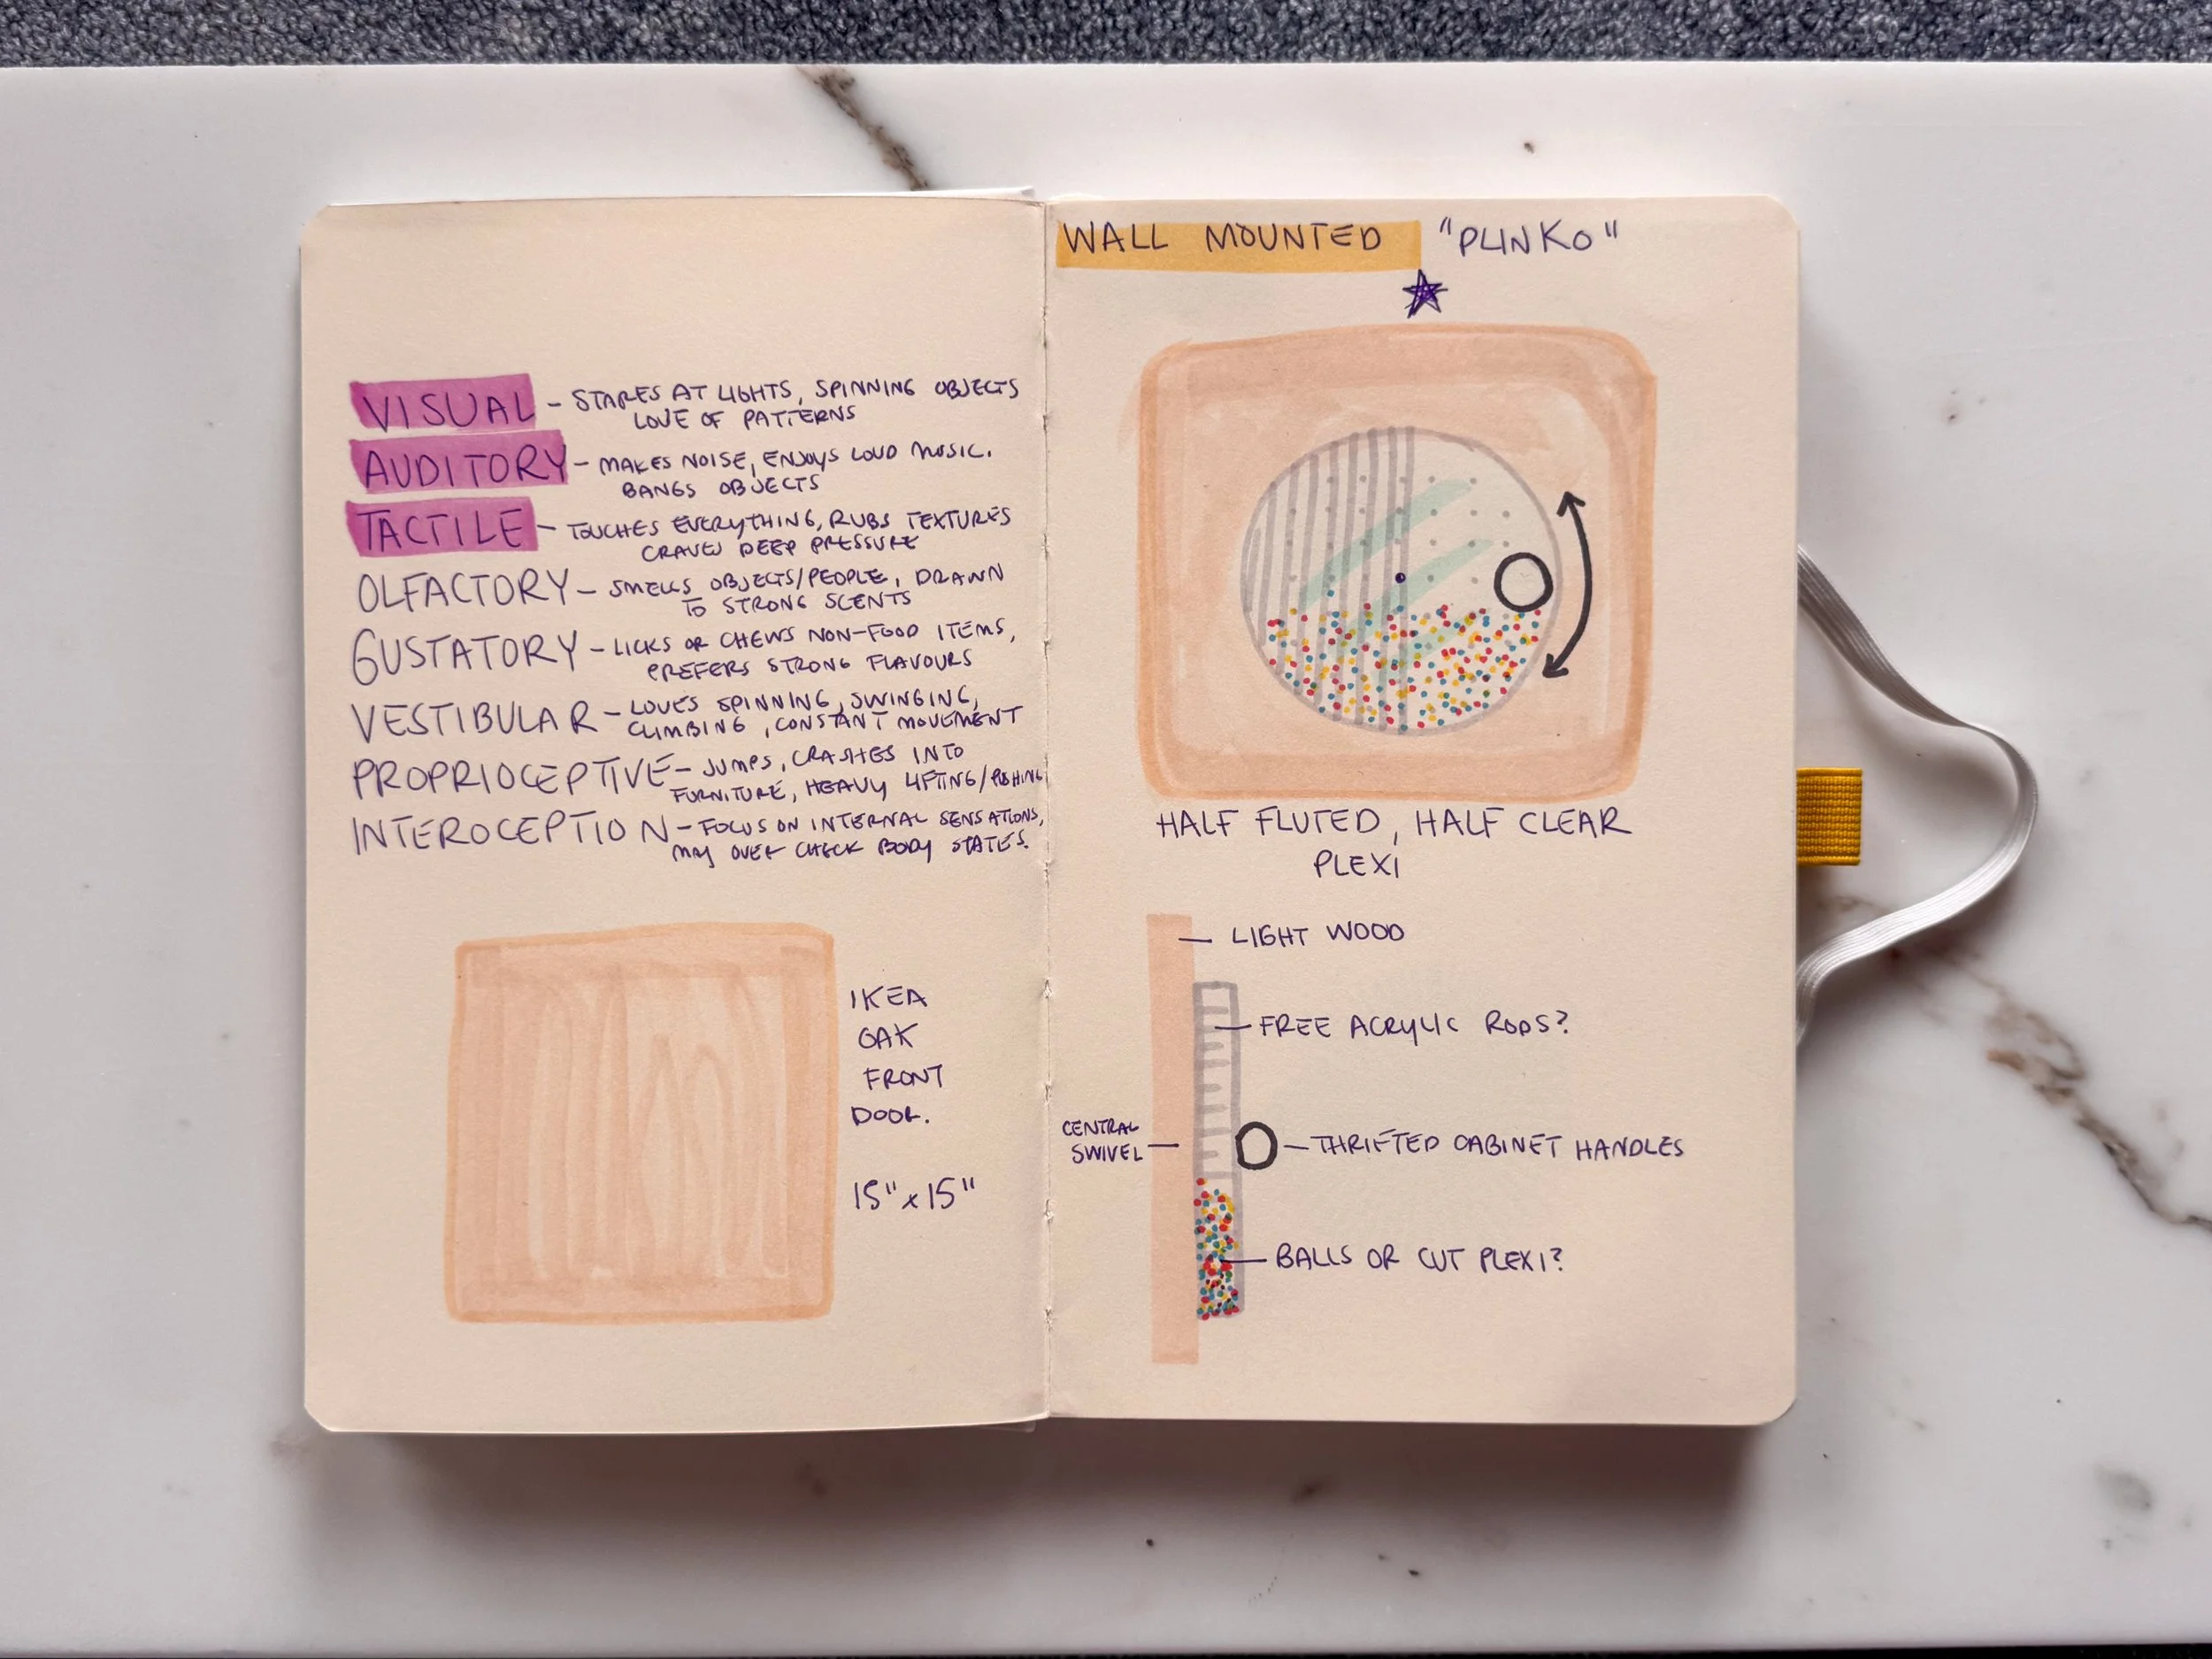 VISUAL - STARES AT LIGHTS, SPINNING OBJECTS
LOVE OF PATTERNS
AUDITORY - MAKES NOISE, ENJOYS LOUD MUSIC.
BANGS OBJECTS
TACTILE - TOUCHES EVERYTHING, RUBS TEXTURES
CRAVES DEEP PRESSURE
OLFACTORY - SMELLS OBJECTS/PEOPLE, DRAWN
TO STRONG SCENTS
GUSTATORY - LICKS OR CHEWS NON-FOOD ITEMS,
PREFERS STRONG FLAVOURS
VESTIBULAR - LOVES SPINNING, SWINGING,
CLIMBING, CONSTANT MOVEMENT
PROPRIOCEPTIVE - JUMPS, CRASHES INTO
FURNITURE, HEAVY LIFTING/PUSHING
INTEROCEPTION - FOCUS ON INTERNAL SENSATIONS,
MAY OVER CHECK BODY STATES.
IKEA
OAK
FRONT
DOOR.
15" x 15"
WALL MOUNTED "PLINKO"
HALF FLUTED, HALF CLEAR
PLEXI
LIGHT WOOD
FREE ACRYLIC RODS?
CENTRAL
SWIVEL
THRIFTED CABINET HANDLES
BALLS OR CUT PLEXI?